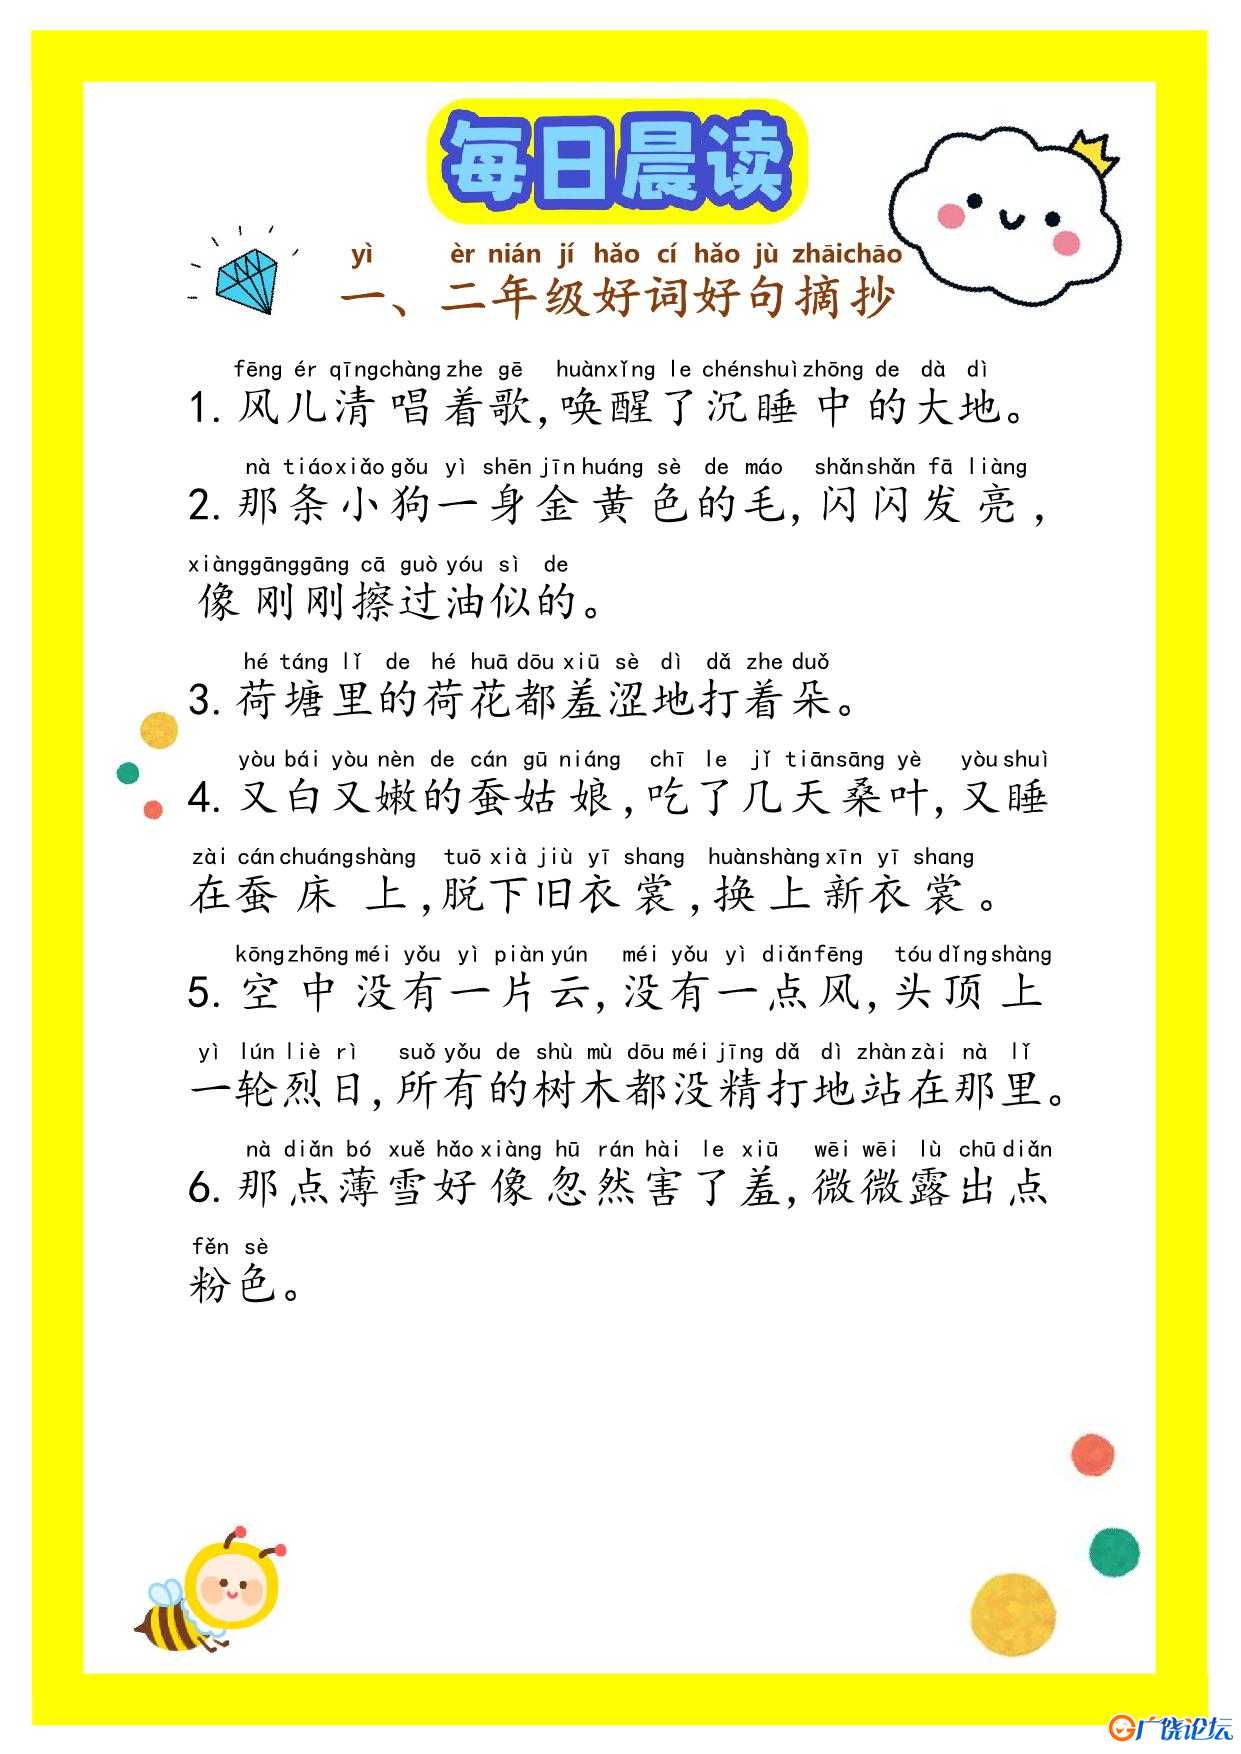 每日晨读
yì èr nián jí hǎo cí hǎo jù zhāichāo
一、二年级好词好句摘抄
fēng ér qīngchàng zhe gē huànxǐng le chénshuìzhōng de dà dì
1. 风儿清唱着歌,唤醒了沉睡中的大地。
nà tiáoxiǎo gǒu yì shēn jīn huáng sè de máo shǎnshǎn fā liàng
2. 那条小狗一身金黄色的毛,闪闪发亮,
xiànggānggāng cā guò yóu sì de
像刚刚擦过油似的。
hé táng lǐ de hé huā dōu xiū sè dì dǎ zhe duǒ
3. 荷塘里的荷花都羞涩地打着朵。
yòu bái yòu nèn de cán gū niáng chī le jǐ tiānsāng yè yòu shuì
4. 又白又嫩的蚕姑娘,吃了几天桑叶,又睡
zài cán chuángshàng tuō xià jiù yī shang huànshàng xīn yī shang
在蚕床上,脱下旧衣裳,换上新衣裳。
kōngzhōng méi yǒu yì piàn yún méi yǒu yì diǎnfēng tóu dǐngshàng
5. 空中没有一片云,没有一点风,头顶上
yì lún liè rì suǒ yǒu de shù mù dōu méi jīng dǎ dì zhàn zài nà lǐ
一轮烈日,所有的树木都没精打地站在那里。
nà diǎn bó xuě hǎo xiàng hū rán hài le xiū wēi wēi lù chū diǎn
6. 那点薄雪好像忽然害了羞,微微露出点
fěn sè
粉色。
广饶论坛